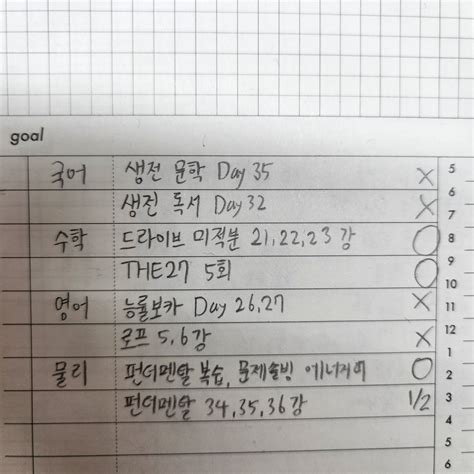 goal
국어 생전 문학 Day 35 X 5
6
생전 독서 Day 32 X 7
수학 드라이브 미적분 21,22,23 강 O 8
9
THE27 5회 O 10
영어 능률보카 Day 26,27 X 11
12
로프 5,6강 X 1
물리 펀더멘탈 복습, 문제솔빙 에너지 O 2
펀더멘탈 34,35,36강 1/2 3
4
5
6